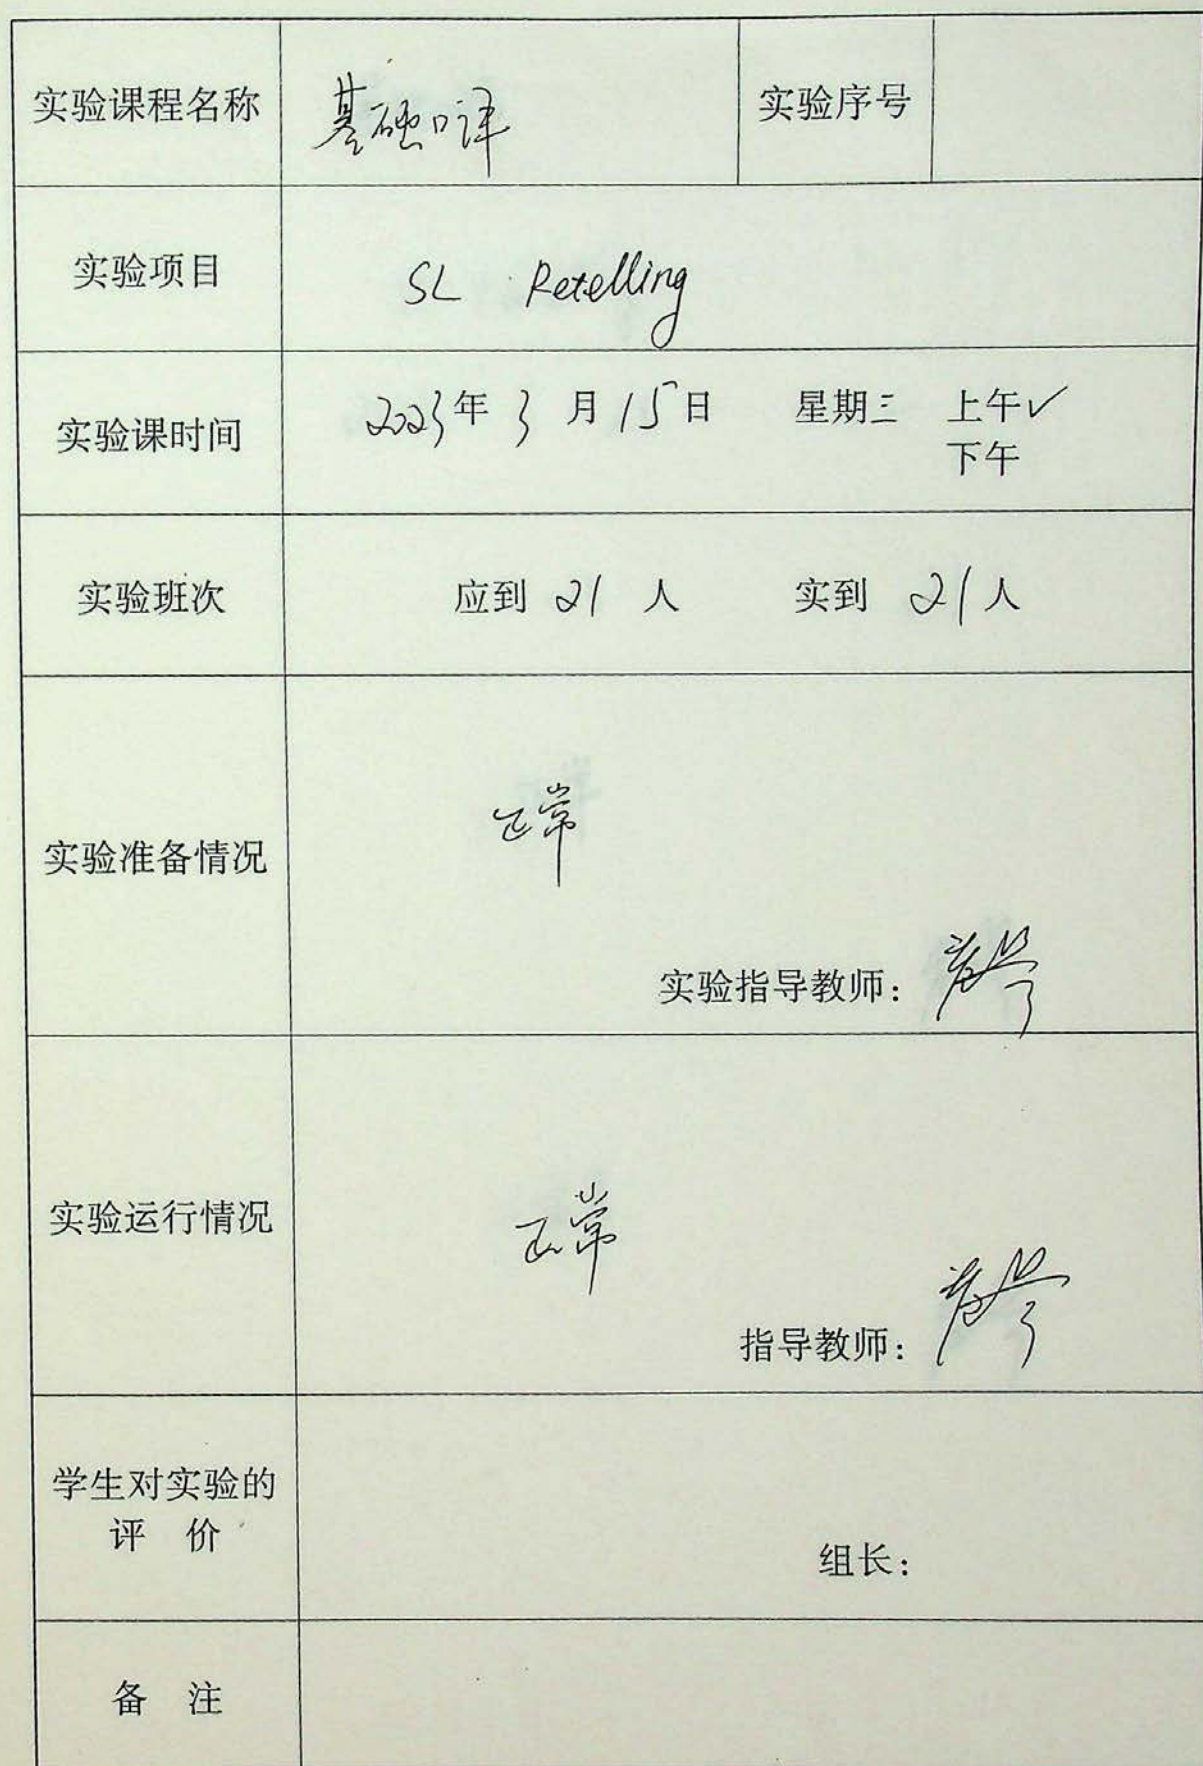 实验课程名称 基础口译 实验序号
实验项目 SL Retelling
实验课时间 2023年 3 月 15 日 星期三 上午✓
下午
实验班次 应到 21 人 实到 21 人
实验准备情况 正常
实验指导教师：
实验运行情况 正常
指导教师：
学生对实验的
评 价
组长：
备 注